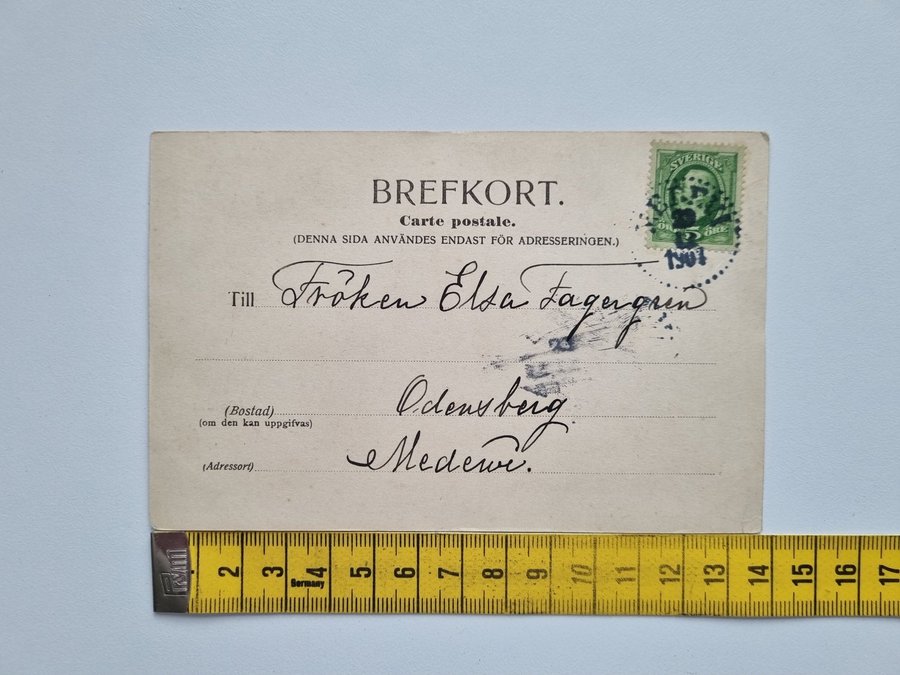 BREFKORT.
Carte postale.
(DENNA SIDA ANVÄNDES ENDAST FÖR ADRESSERINGEN.)
SVERIGE
5 ÖRE
1901
Till Fröken Elsa Fagergren
(Bostad) Odensberg
(om den kan uppgifvas)
(Adressort) Medewi.
2 3 4 5 6 7 8 9 10 11 12 13 14 15 16 17
Germany